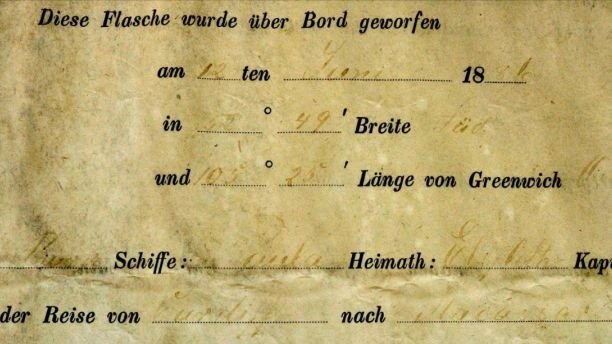 Diese Flasche wurde über Bord geworfen
am 12 ten Juni 18
in ° 49' Breite Süd
und 105° 25' Länge von Greenwich
Schiffe: Paula Heimath: Elsfleth Kapi
der Reise von Cardiff nach